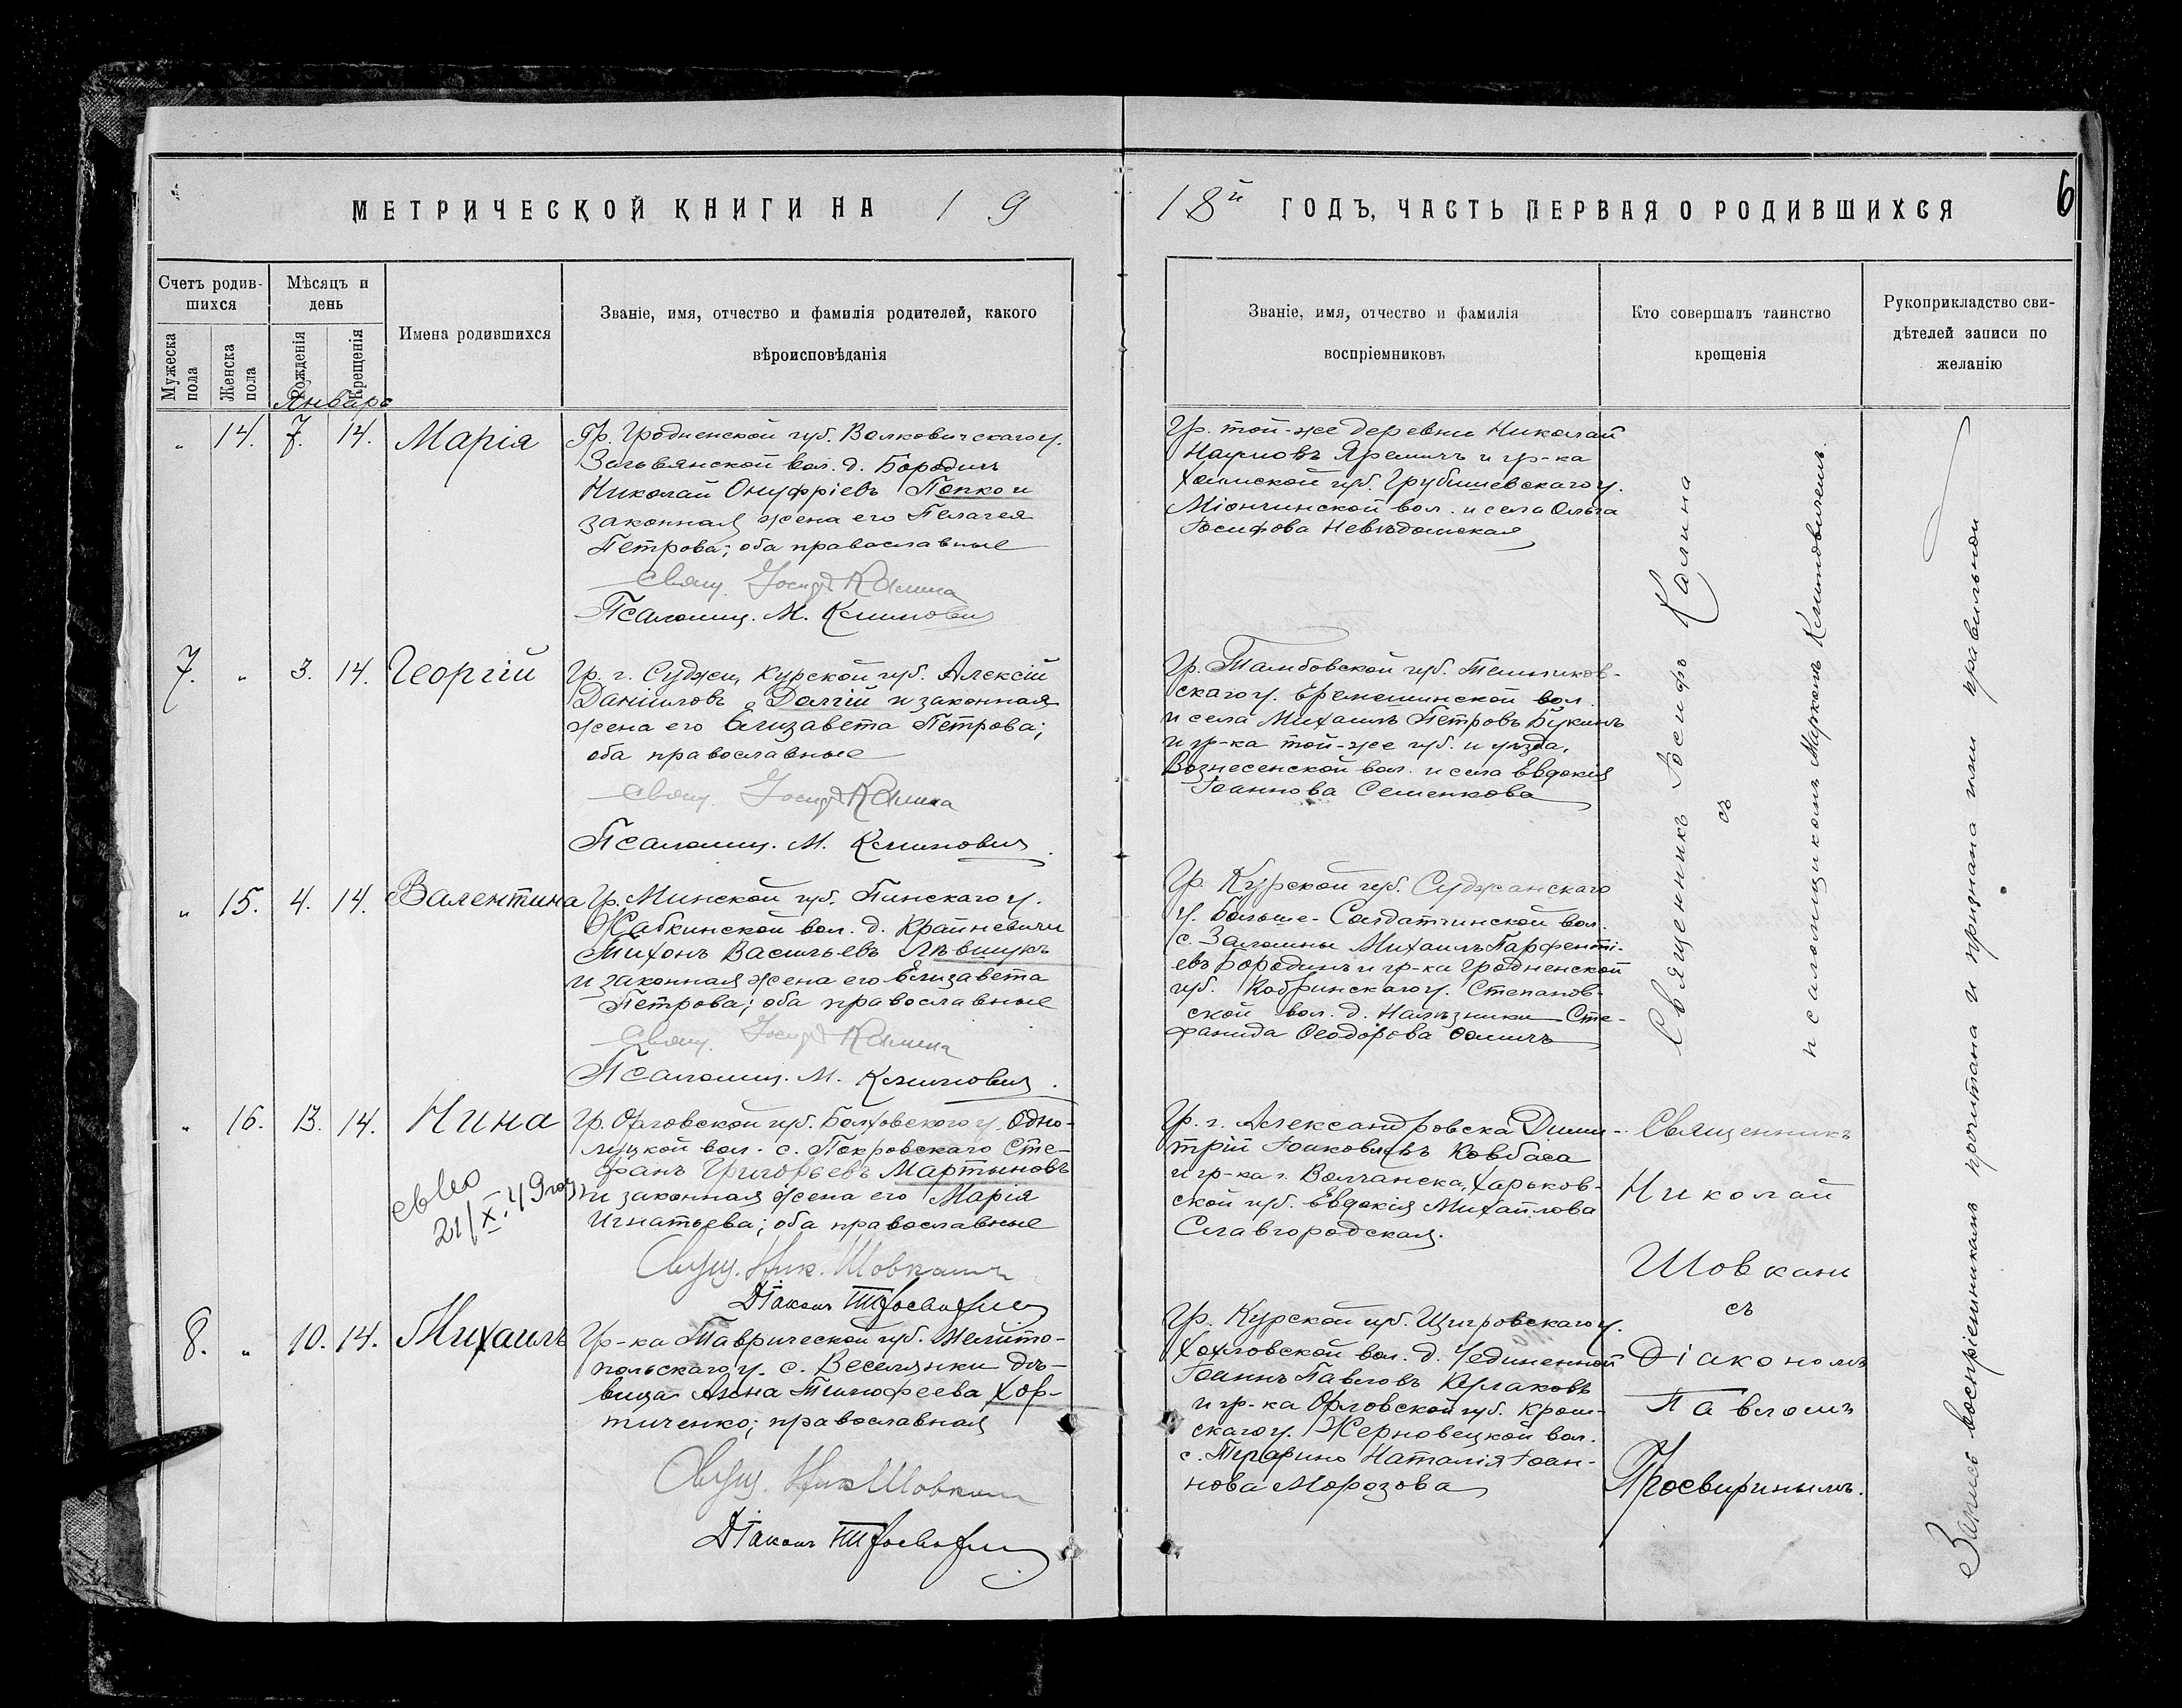 МЕТРИЧЕСКОЙ КНИГИ НА 19
18й ГОДЪ, ЧАСТЬ ПЕРВАЯ О РОДИВШИХСЯ
6
Счетъ родив-
шихся
Мужеска пола
Женска пола
Мѣсяцъ и
день
Рожденія
Крещенія
Имена родившихся
Званіе, имя, отчество и фамилія родителей, какого
вѣроисповѣданія
Званіе, имя, отчество и фамилія
воспріемниковъ
Кто совершалъ таинство
крещенія
Рукоприкладство сви-
дѣтелей записи по
желанію
Январь
" 14. 7. 14. Марія
Гр. Гродненской губ. Волковичскаго у.
Зельвянской вол. д. Бородичи
Николай Онуфріевъ Попко и
законная жена его Пелагея
Петрова; оба православные
Свящ. Іосифъ Калина
Псаломщ. М. Климович
Гр. той-же деревни Николай
Наумовъ Яремичъ и гр-ка
Холмской губ. Грубишевскаго у.
Міончинской вол. и села Ольга
Іосифова Невѣдомская
7. " 3. 14. Георгій
Гр. г. Суджи, Курской губ. Алексій
Даніиловъ Долгій и законная
жена его Елизавета Петрова;
оба православные
Свящ. Іосифъ Калина
Псаломщ. М. Климович.
Гр. Тамбовской губ. Темников-
скаго у. Еремшинской вол.
и села Михаилъ Петровъ Букинъ
и гр-ка той-же губ. и уѣзда,
Вознесенской вол. и села Евдокія
Іоаннова Семенкова
" 15. 4. 14. Валентина
Гр. Минской губ. Пинскаго у.
Жабкинской вол. д. Крайневичи
Тихонъ Васильевъ Лѣвшукъ
и законная жена его Елизавета
Петрова; оба православные
Свящ. Іосифъ Калина
Псаломщ. М. Климович.
Гр. Курской губ. Суджанскаго
у. Больше-Солдатчинской вол.
с. Заломны Михаилъ Парфенті-
евъ Бородинъ и гр-ка Гродненской
губ. Кобринскаго у. Степанов-
ской вол. д. Сте-
фанида Ѳеодорова
Священникъ Іосифъ Калина
съ
псаломщикомъ Маркомъ Климовичемъ.
" 16. 13. 14. Нина
21/X. 49 год
Гр. Орловской губ. Болховского у. Одно-
луцкой вол. с. Покровскаго Сте-
фанъ Григорьевъ Мартыновъ
и законная жена его Марія
Игнатьева; оба православные
Свящ. Ник. Шовкань
Діаконъ Просвиринъ
Гр. г. Александровска Дими-
трій Іаковлевъ Ковбаса
и гр-ка г. Волчанска, Харьков-
ской губ. Евдокія Михайлова
Славгородская.
8. " 10. 14. Михаилъ
Гр-ка Таврической губ. Мелито-
польскаго у. с. Веселянки дѣ-
вица Анна Тимофеева Хор-
тиченко; православная
Свящ. Ник. Шовкань
Діаконъ Просвиринъ
Гр. Курской губ. Щигровскаго у.
Хохловской вол. д. Уединенной
Іоаннъ Павловъ Кулаковъ
и гр-ка Орловской губ. Кром-
скаго у. Жерновецкой вол.
с. Наталія Іоан-
нова Морозова
Священникъ
Николай
Шовкань
съ
Діакономъ
Павломъ
Просвиринымъ.
Запись воспріемникамъ прочитана и признана ими правильной